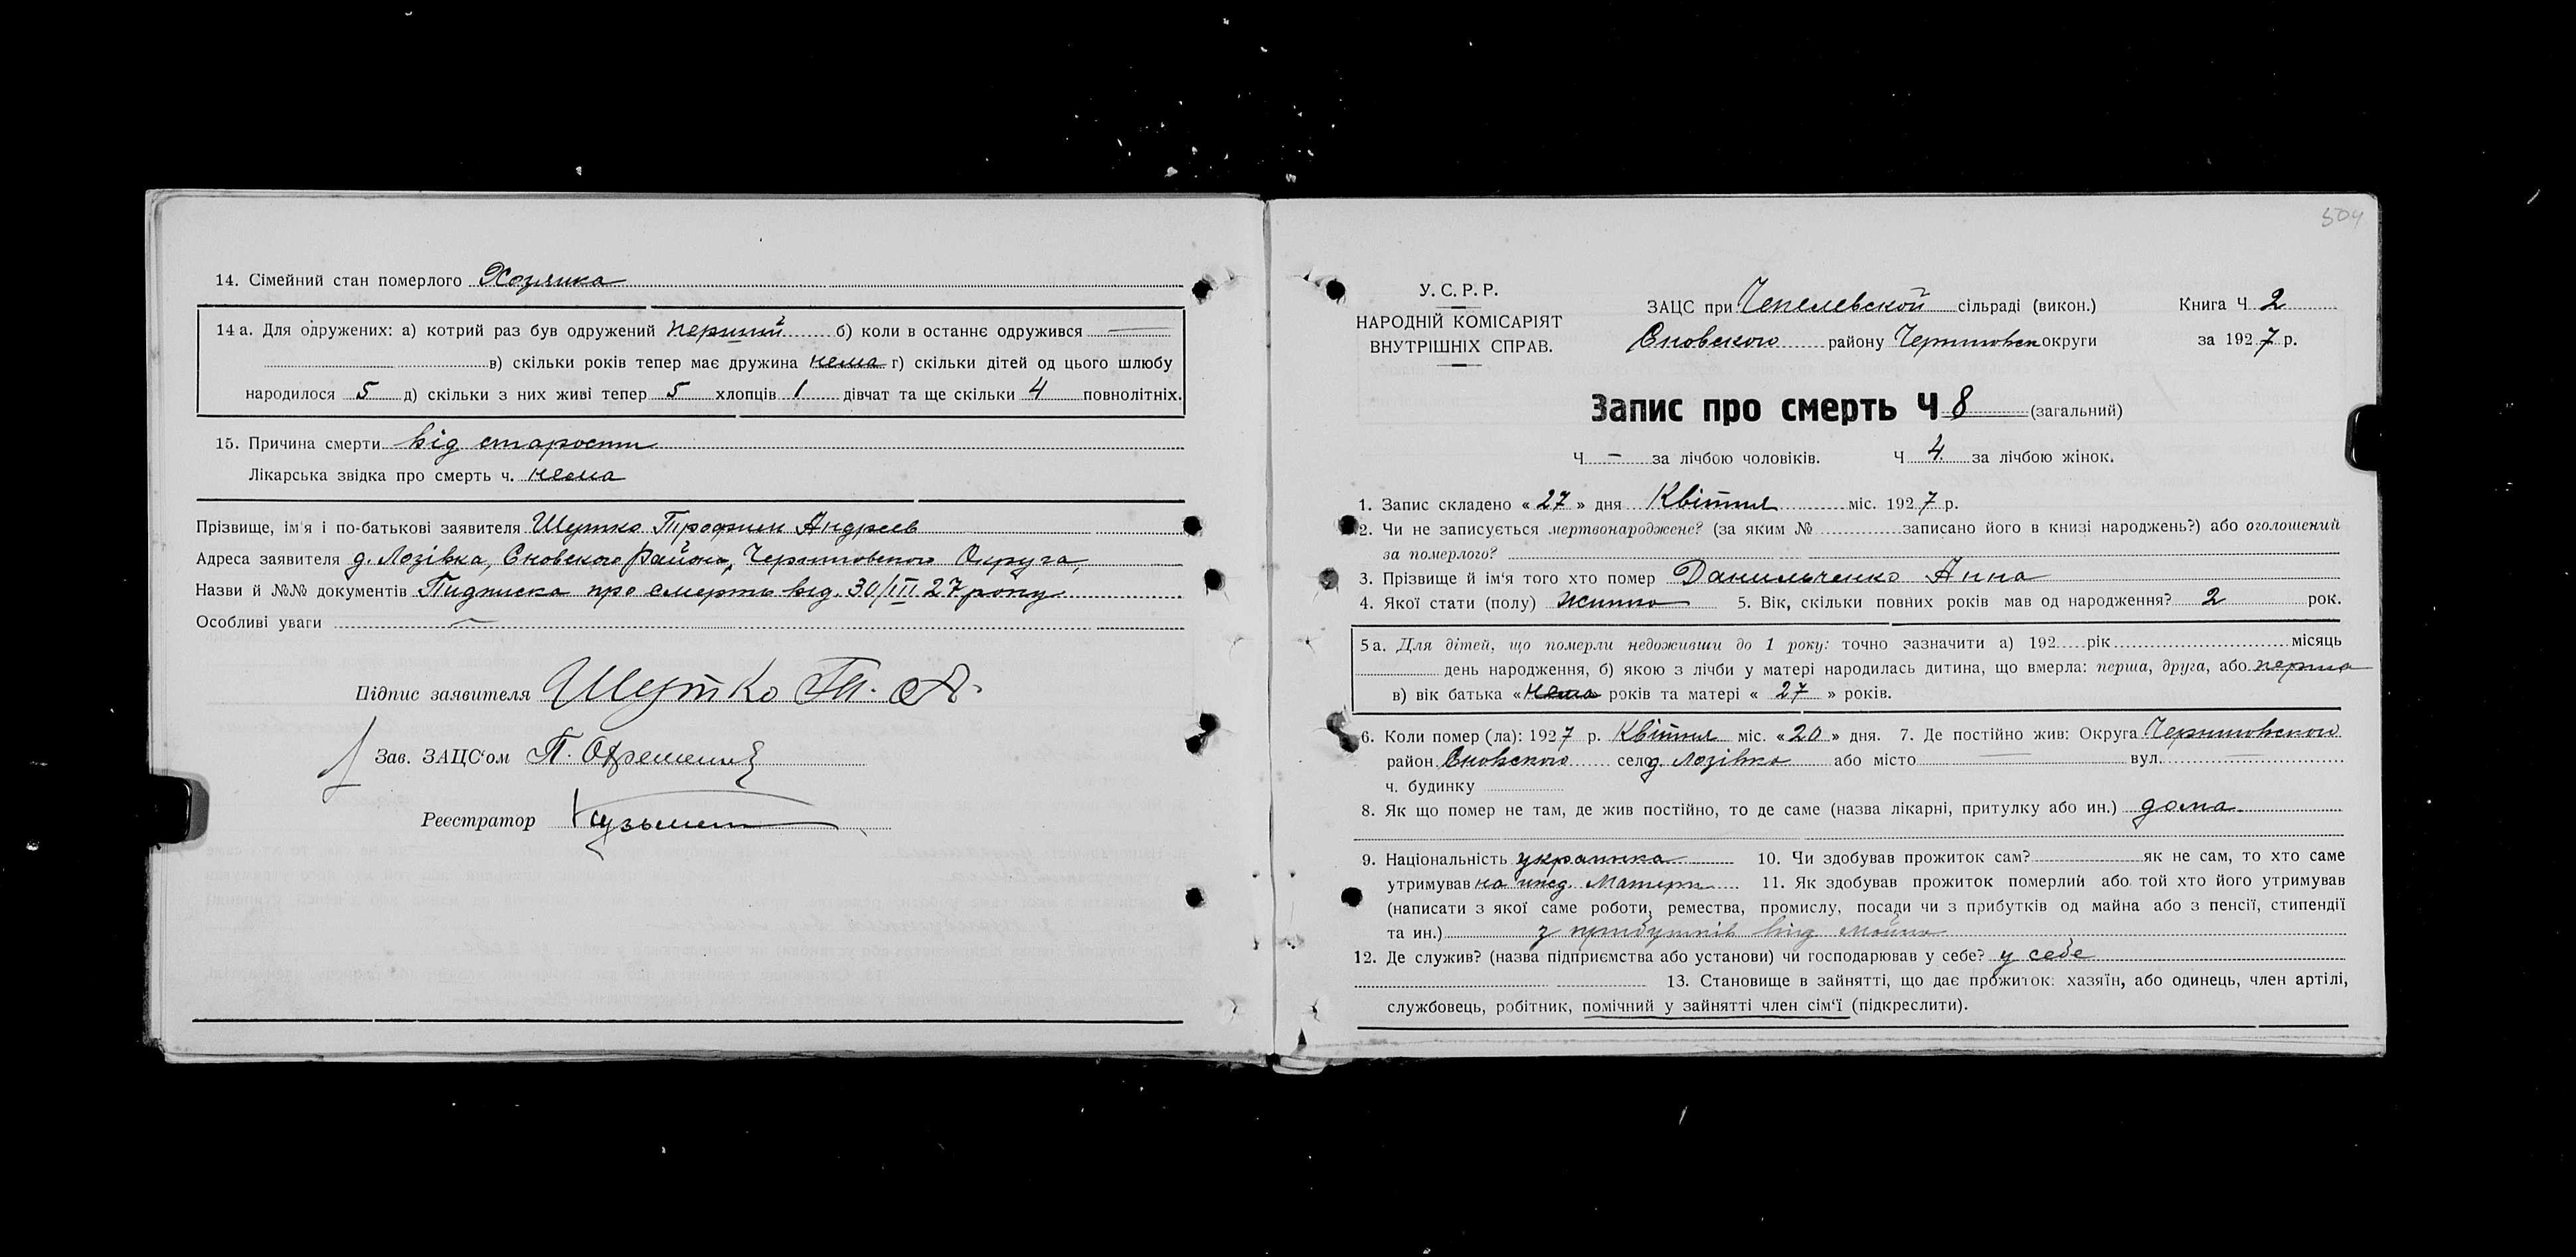 14. Сімейний стан померлого Хозяика
14 а. Для одружених: а) котрий раз був одружений перший б) коли в останнє одружився —
в) скільки років тепер має дружина нема г) скільки дітей од цього шлюбу
народилося 5 д) скільки з них живі тепер 5 хлопців 1 дівчат та ще скільки 4 повнолітніх.
15. Причина смерти від старости
Лікарська звідка про смерть ч. нема
Прізвище, ім'я і по-батькові заявителя Шутко Трофим Андреев
Адреса заявителя д. Лозівка, Сновського Району, Черниговского Округа,
Назви й №№ документів Підписка про смерть від. 30/III 27 року
Особливі уваги —
Підпис заявителя Шутко Т. А.
Зав. ЗАЦС'ом П.
Реєстратор
504
У. С. Р. Р.
НАРОДНІЙ КОМІСАРІЯТ
ВНУТРІШНІХ СПРАВ.
ЗАЦС при Чепелевской сільраді (викон.)
Сновского району Черниговск округи
Книга Ч. 2
за 1927 р.
Запис про смерть Ч 8 (загальний)
Ч — за лічбою чоловіків. Ч 4 за лічбою жінок.
1. Запис складено « 27 » дня Квітня міс. 1927 р.
2. Чи не записується мертвонароджене? (за яким № записано його в книзі народжень?) або оголошений
за померлого?
3. Прізвище й ім'я того хто помер Данильченко Анна
4. Якої стати (полу) Жинка 5. Вік, скільки повних років мав од народження? 2 рок.
5 а. Для дітей, що померли недоживши до 1 року: точно зазначити а) 192 рік місяць
день народження, б) якою з лічби у матері народилась дитина, що вмерла: перша, друга, або перша
в) вік батька «нема» років та матері « 27 » років.
6. Коли помер (ла): 1927 р. Квітня міс. «20» дня. 7. Де постійно жив: Округа Черниговского
район Сновского село д. Лозівка або місто — вул.
ч. будинку
8. Як що помер не там, де жив постійно, то де саме (назва лікарні, притулку або ин.) дома
9. Національність украинка 10. Чи здобував прожиток сам? як не сам, то хто саме
утримував на ижд. Матери 11. Як здобував прожиток померлий або той хто його утримував
(написати з якої саме роботи, ремества, промислу, посади чи з прибутків од майна або з пенсії, стипендії
та ин.) з прибутків від майна
12. Де служив? (назва підприємства або установи) чи господарював у себе? у себе
13. Становище в зайнятті, що дає прожиток: хазяїн, або одинець, член артілі,
службовець, робітник, помічний у зайнятті член сім'ї (підкреслити).